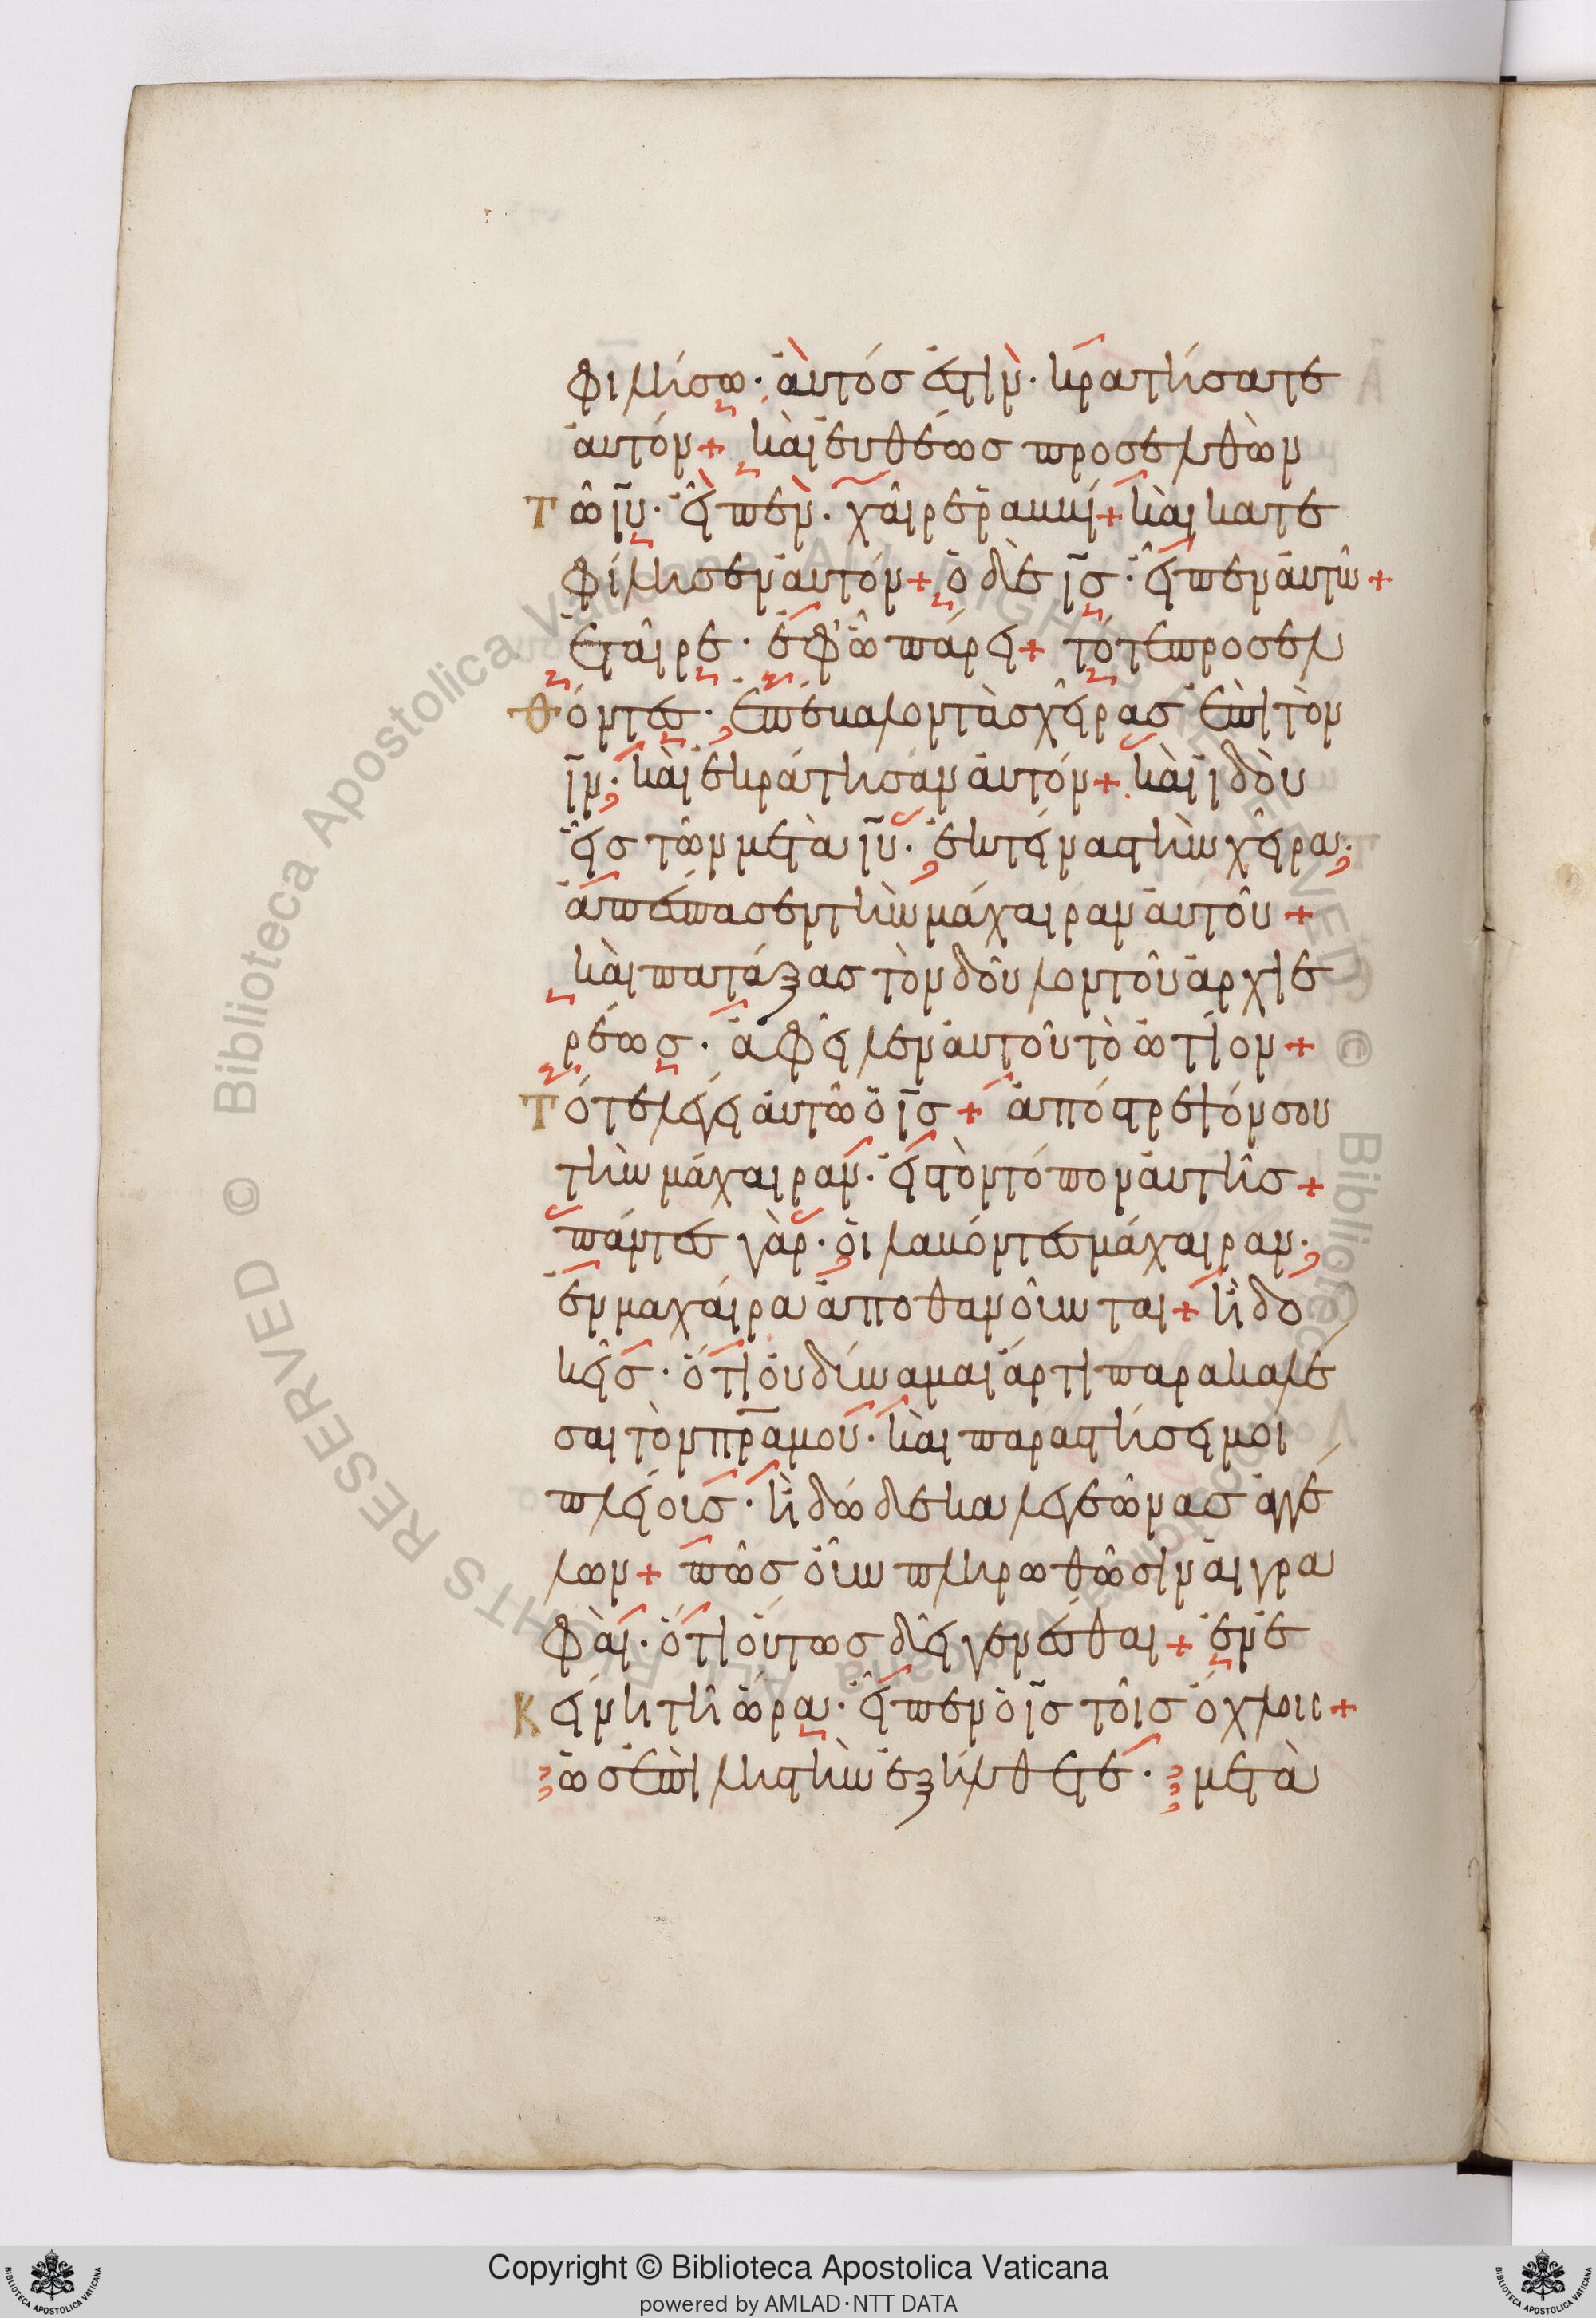 φιλήσω· ἀυτός ἐστὶν· κρατήσατε
ἀυτόν + κὰι ἐυθέως προσελθὼν
Τῶ ἰῡ· εἶπεν· χᾶιρε ῥαββί + κὰι κατε
φίλησεν ἀυτόν + ὁ δὲ ἰς̄· εἶπεν ἀυτῶ +
ἑταῖρε· ἐφ' ὧ πάρει + τότε προσελ
θόντες· ἐπέβαλον τὰς χεῖρας ἐπὶ τὸν
ἰν̄· κὰι ἐκράτησαν ἀυτόν + κὰι ἰδὸυ
εἷς τῶν μετὰ ἰῡ· ἐκτείνας τὴν χεῖρα·
ἀπέσπασεν τὴν μάχαιραν ἀυτοῦ +
κὰι πατάξας τὸν δοῦλον τοῦ ἀρχιε
ρέως· ἀφεῖλεν ἀυτοῦ τὸ ὠτίον +
Τότε λέγει ἀυτῶ ὁ ἰς̄ + ἀπόστρεψόν σου
τὴν μάχαιραν· εἰς τὸν τόπον ἀυτῆς +
πάντες γὰρ· ὁι λαβόντες μάχαιραν·
ἐν μαχάιρα ἀποθανοῦνται + ἢ δο
κεῖς· ὅτι ὀυ δύναμαι ἄρτι παρακαλέ
σαι τὸν πρ̄α μου· κὰι παραστήσει μοι
πλείους· ἢ δώδεκα λεγεῶνας ἀγγέ
λων + πῶς ὀῦν πληρωθῶσιν ἁι γρα
φὰι· ὅτι ὅυτως δεῖ γενέσθαι + ἐν ἐ
Κείνη τῆ ὥρα· εἶπεν ὁ ἰς̄ τοῖς ὄχλοις +
ὡς ἐπὶ ληστὴν ἐξήλθετε· μετὰ
Copyright © Biblioteca Apostolica Vaticana
powered by AMLAD·NTT DATA